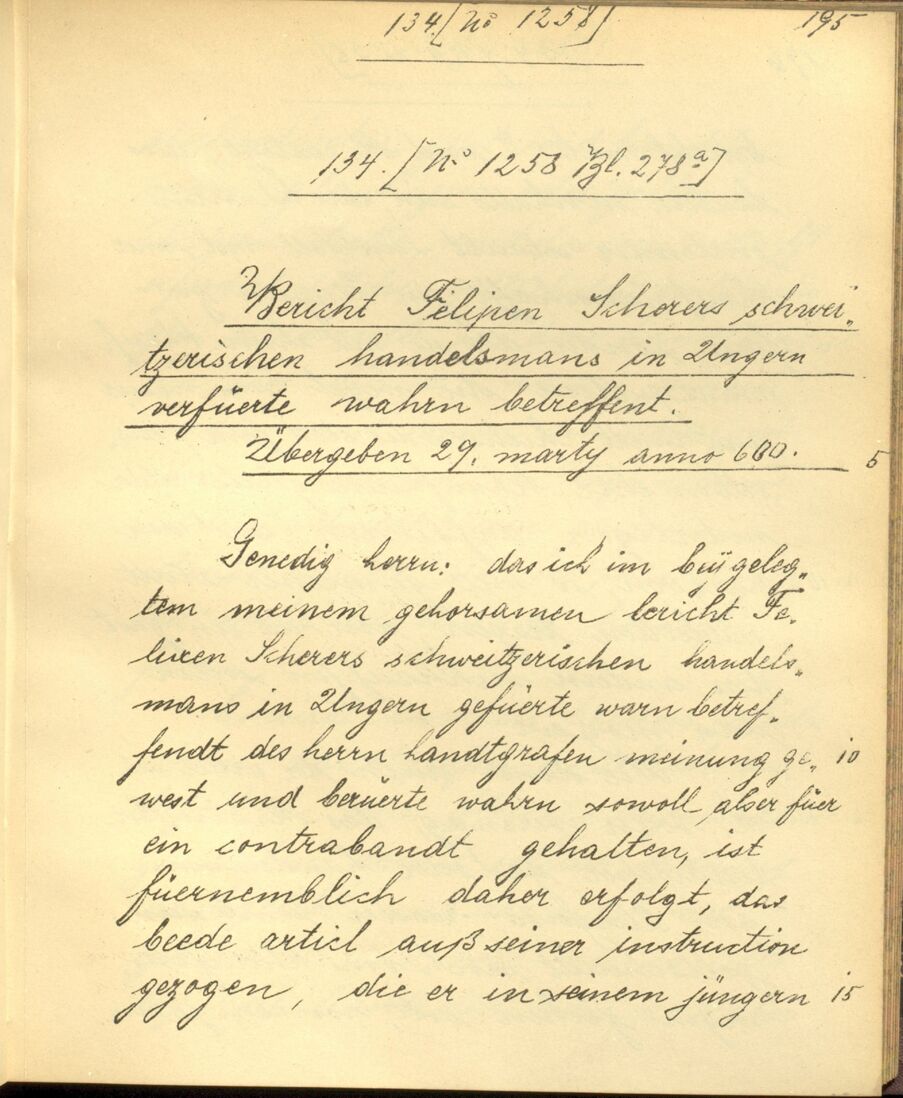 134.[No 1258]
195
134. [No 1258 Bl. 278a]
Bericht Felixen Scherers schwei„
tzerischen handelsmans in Ungern
verfüerte wahrn betreffent.
Übergeben 29. marty anno 600.
5
Genedig herrn: das ich im beÿgeleg„
tem meinem gehorsamen bericht Fe„
lixen Scherers schweitzerischen handels„
mans in Ungern gefüerte warn betref„
fendt des herrn landtgrafen meinung ge„ 10
west und berüerte wahrn sowoll alser füer
ein contrabandt gehalten, ist
füernemblich daher erfolgt, das
beede articl auß seiner instruction
gezogen, die er in seinem jüngern 15